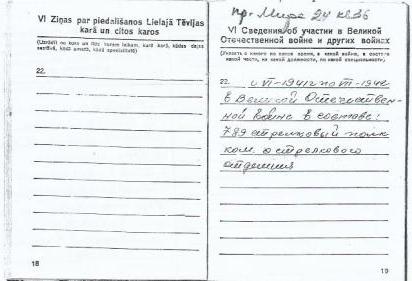 VI Ziņas par piedalīšanos Lielajā Tēvijas
karā un citos karos
(Uzrādīt no kura un līdz kuram laikam, kurā karā, kādas daļas
sastāvā, kādā amatā, kādā specialitātē)
22.
18
пр. Мира 24 кв 36
VI Сведения об участии в Великой
Отечественной войне и других войнах
(Указать с какого по какое время, в какой войне, в составе
какой части, на какой должности, по какой специальности)
22. с VI-1941г по VII-1942
в Великой Отечествен-
ной войне в составе:
789 стрелковый полк
ком. стрелкового
отделения
19